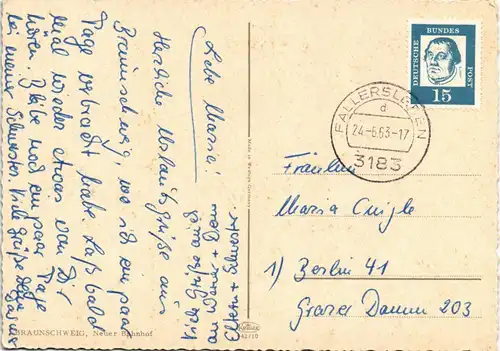 Liebe Masser!
Herzliche Urlaubsgrüße aus
Braunschweig, wo ich ein paar
Tage verbracht habe. Laß bald
mal wieder etwas von Dir
hören. Bleibe noch ein paar Tage
bei meiner Schwester. Viele Grüße Deine
Grüße auch
an Werner + Dein
Eltern + Schwester
BRAUNSCHWEIG, Neuer Bahnhof
DEUTSCHE BUNDES POST
15
FALLERSLEBEN
d
24-6.63-17
3183
Fräulein
Maria
1) Berlin 41
Grazer Damm 203